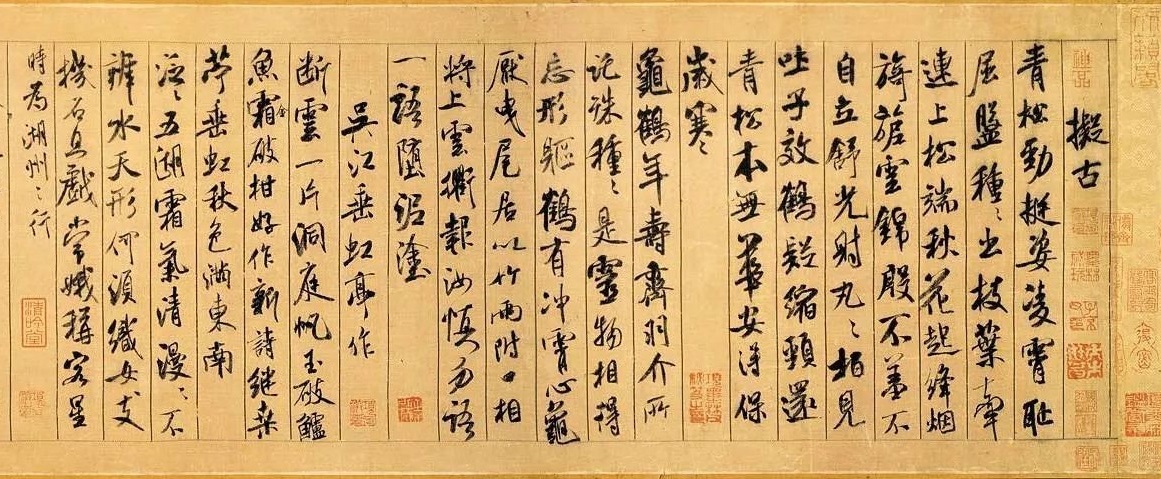 擬古
青松勁挺姿凌霄恥
屈盤種〻出枝葉牽
連上松端秋花起絳烟
旖旎雲錦殷不羞不
自立舒光射丸〻柏見
吐子效鶴疑縮頸還
青松本無華安得保
歲寒〻
龜鶴年壽齊羽介所
託殊種〻是靈物相得
忘形軀鶴有沖霄心龜
厭曳尾居以竹兩附口相
將上雲衢報汝慎勿語
一語墮泥塗
吳江垂虹亭作
斷雲一片洞庭帆玉破鱸
魚霜金破柑好作新詩繼桑
苧垂虹秋色滿東南
泛〻五湖霜氣清漫〻不
辨水天形何須織女支
機石且戲常娥稱客星
時為湖州之行
清吟堂